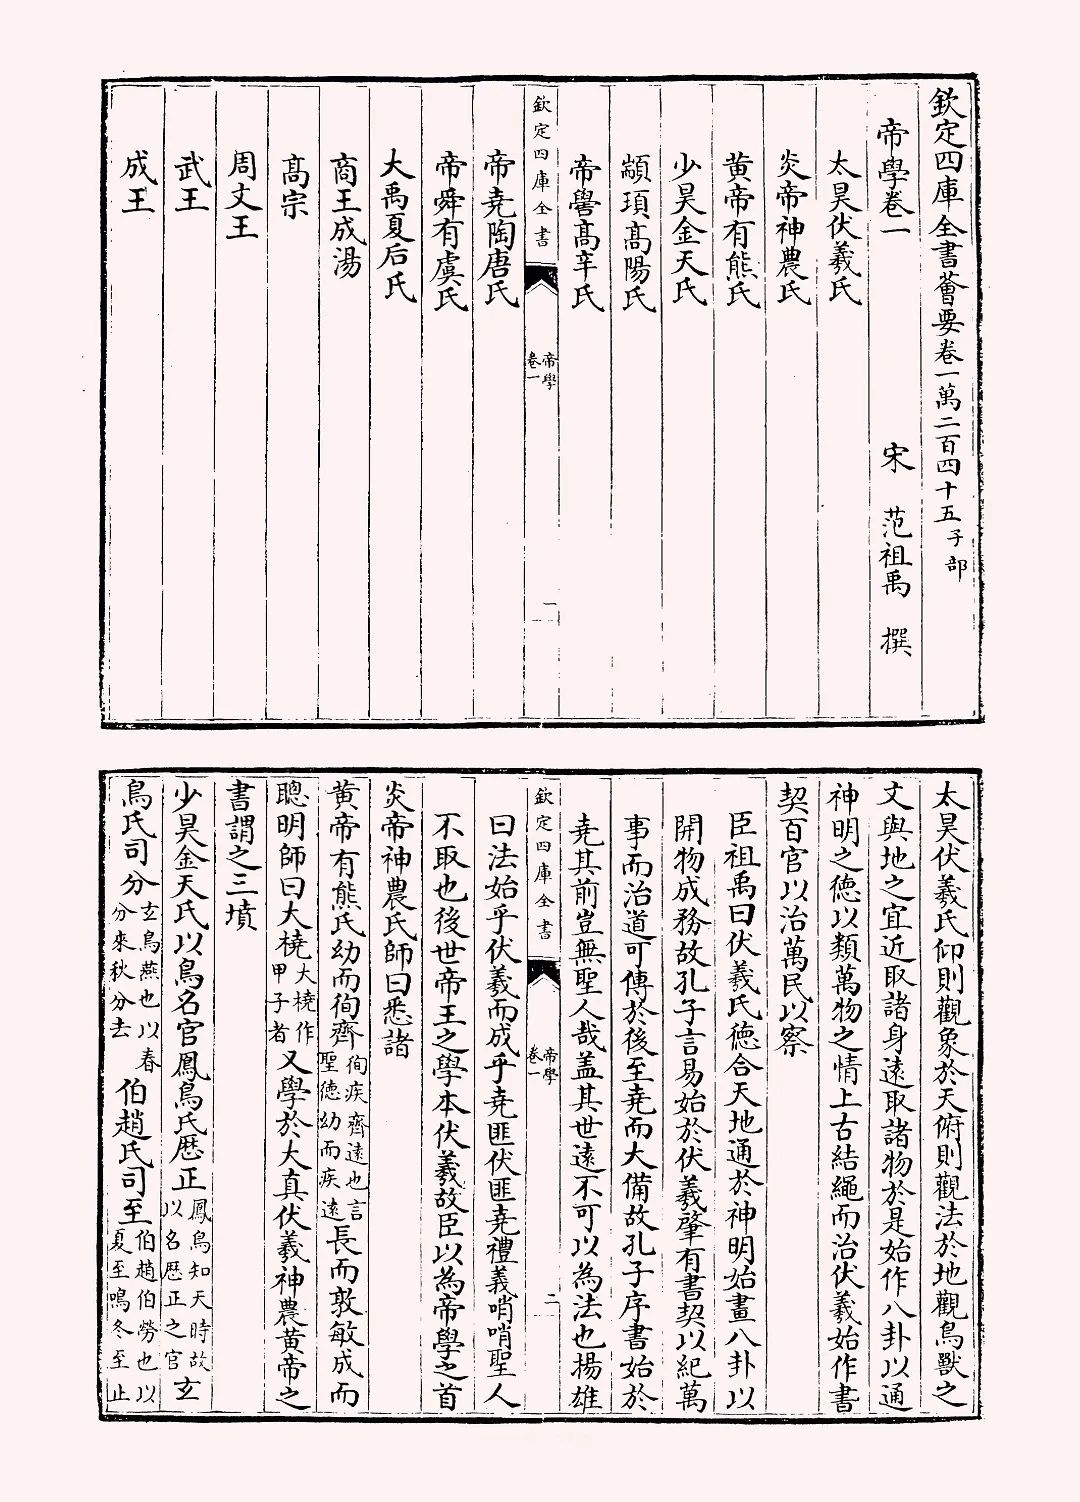 欽定四庫全書薈要卷一萬二百四十五子部
帝學卷一 宋 范祖禹 撰
太昊伏羲氏
炎帝神農氏
黃帝有熊氏
少昊金天氏
顓頊高陽氏
帝嚳高辛氏
欽定四庫全書
帝學
卷一
一
帝堯陶唐氏
帝舜有虞氏
大禹夏后氏
商王成湯
高宗
周文王
武王
成王
太昊伏羲氏仰則觀象於天俯則觀法於地觀鳥獸之
文與地之宜近取諸身遠取諸物於是始作八卦以通
神明之德以類萬物之情上古結繩而治伏羲始作書
契百官以治萬民以察
臣祖禹曰伏羲氏德合天地通於神明始畫八卦以
開物成務故孔子言易始於伏羲肇有書契以紀萬
事而治道可傳於後至堯而大備故孔子序書始於
堯其前豈無聖人哉蓋其世遠不可以為法也揚雄
欽定四庫全書
帝學
卷一
二
曰法始乎伏羲而成乎堯匪伏匪堯禮義哨哨聖人
不取也後世帝王之學本伏羲故臣以為帝學之首
炎帝神農氏師曰悉諸
黃帝有熊氏幼而徇齊徇疾齊速也言聖德幼而疾速長而敦敏成而
聰明師曰大橈大橈作甲子者又學於大真伏羲神農黃帝之
書謂之三墳
少昊金天氏以鳥名官鳳鳥氏厯正鳳鳥知天時故以名厯正之官玄
鳥氏司分玄鳥燕也以春分來秋分去伯趙氏司至伯趙伯勞也以夏至鳴冬至止